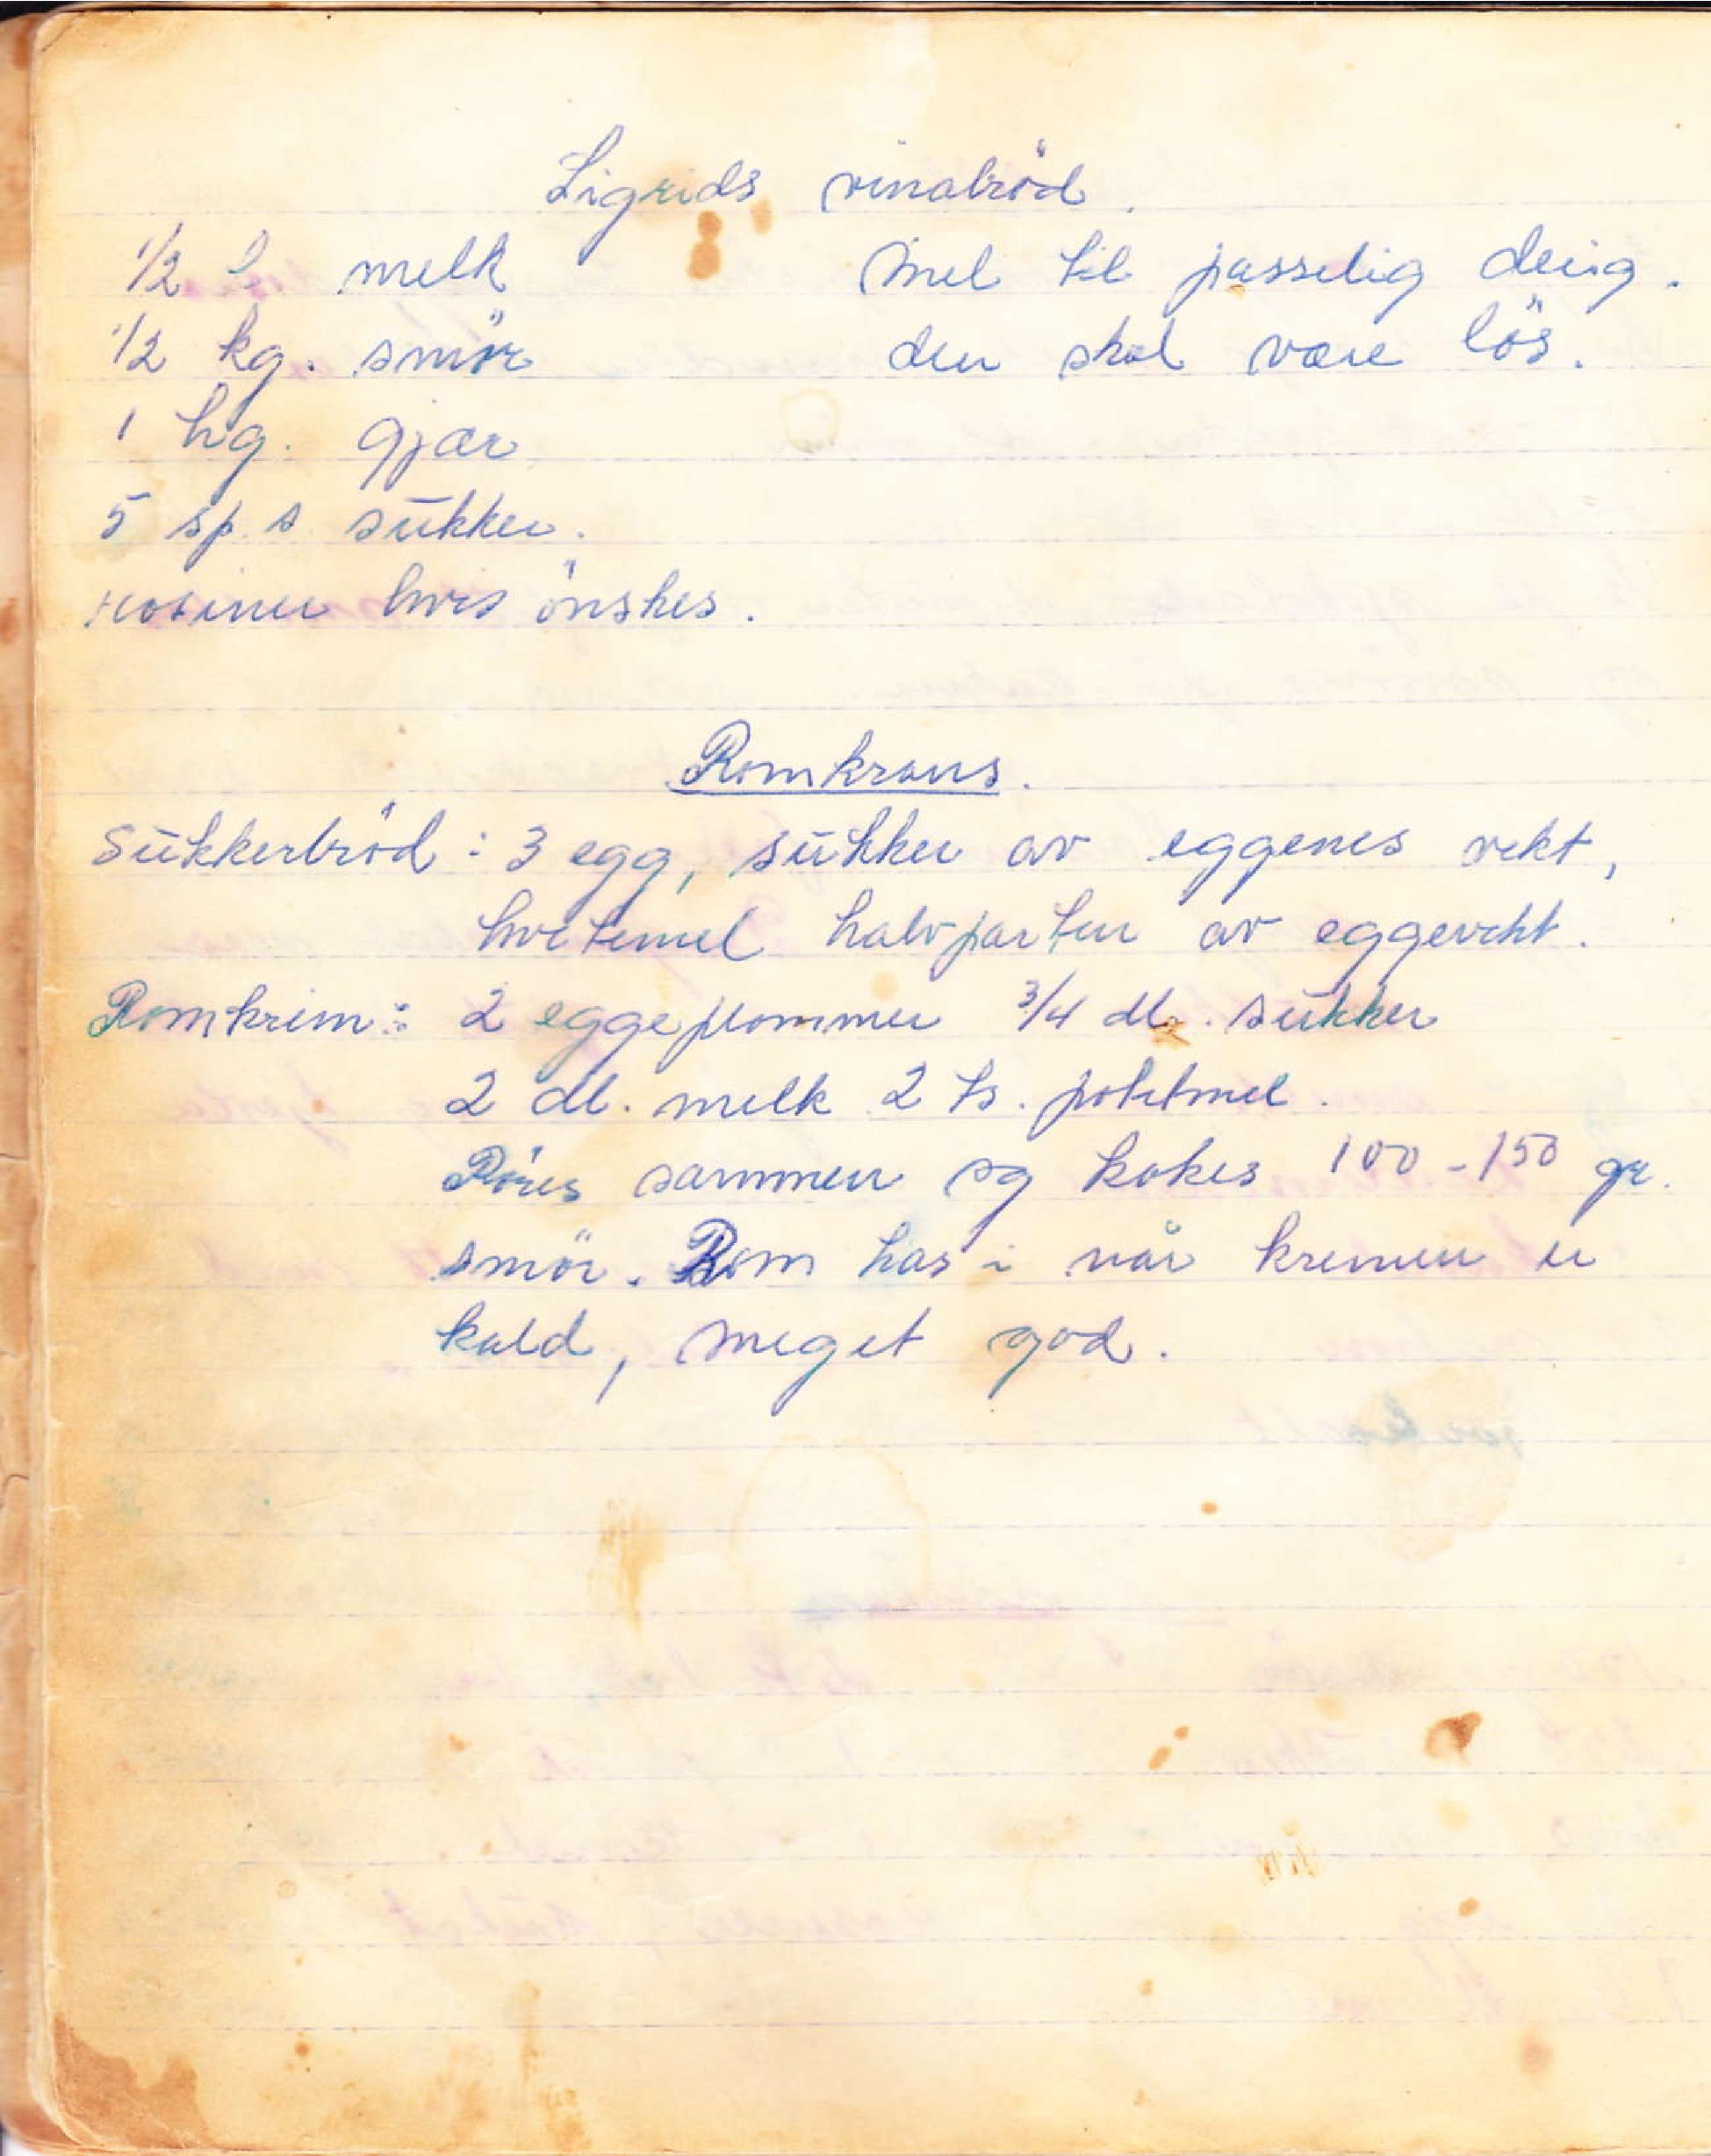 Sigrids vinabröd.
1/2 l. melk
1/2 kg. smör
1 hg. gjær
5 sp. s sukker.
rosiner hvis önskes.
Mel til passelig deig.
den skal være lös.
Romkrans.
Sukkerbröd: 3 egg, sukker av eggenes vekt,
hvetemel halvparten av eggevekt.
Romkrem: 2 eggeplommer 3/4 dl. sukker
2 dl. melk 2 ts. potetmel.
Röres sammen og kokes 100-150 gr.
smör. Rom has i når kremen er
kald, meget god.